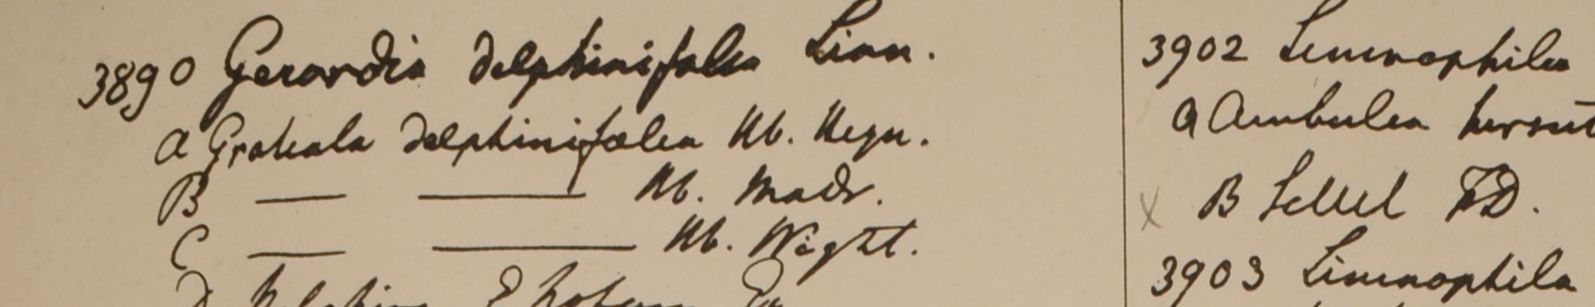 3890 Gerardia delphinifolia Linn.
a Gratiola delphinifolia Hb. Heyn.
B — — Hb. Madr.
C — — Hb. Wight.
3902 Limnophila
a Ambulia hirsut
x B Sillet FD.
3903 Limnophila